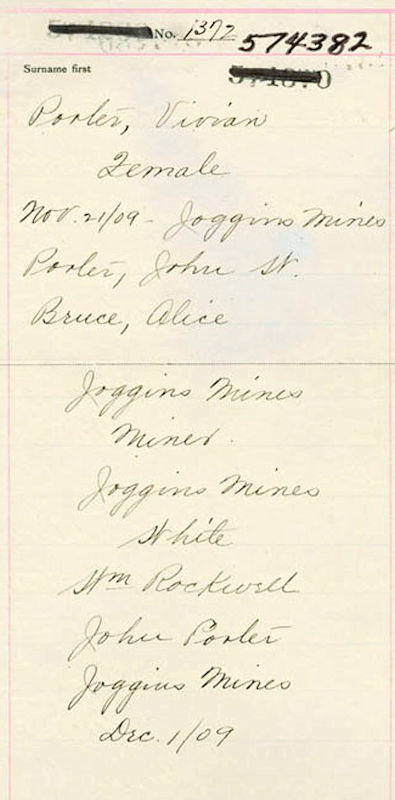 No. 1372
574382
Surname first
Porter, Vivian
Female
Nov. 21/09 - Joggins Mines
Porter, John W.
Bruce, Alice
Joggins Mines
Miner.
Joggins Mines
White
Wm Rockwell
John Porter
Joggins Mines
Dec. 1/09